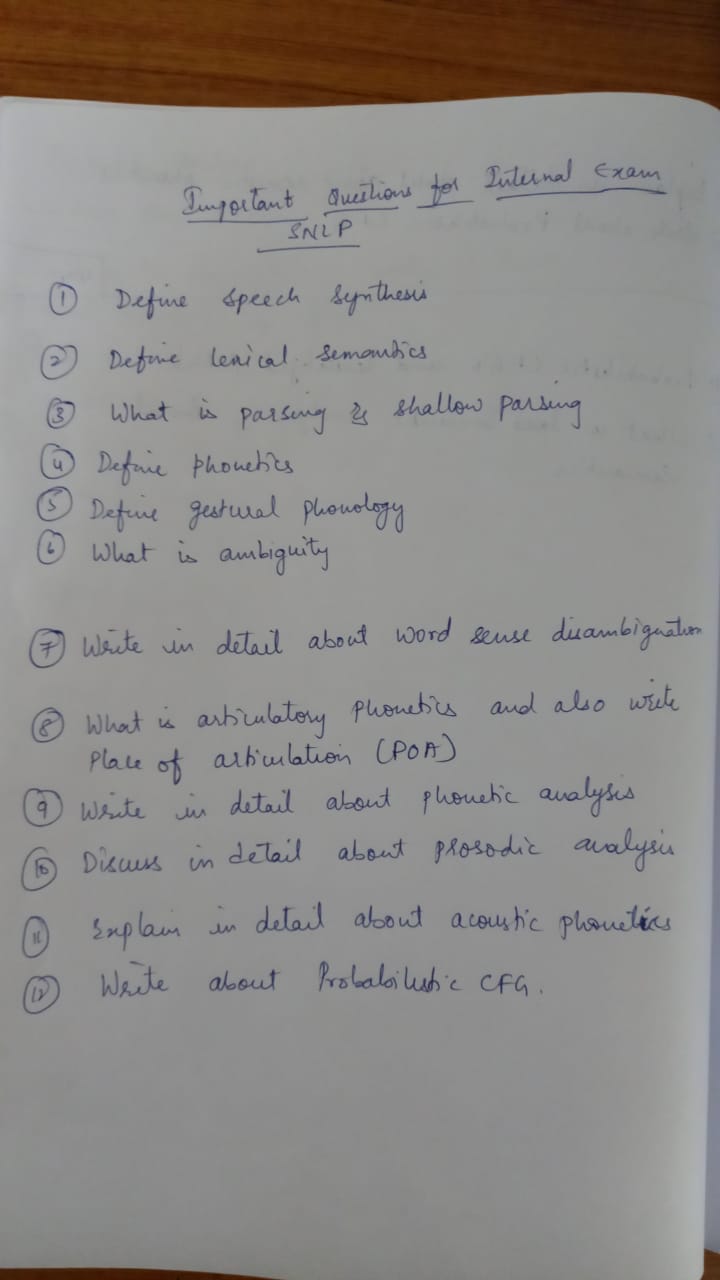 Important Questions for Internal Exam
SNLP
① Define speech synthesis
② Define lexical semantics
③ What is parsing & shallow parsing
④ Define phonetics
⑤ Define gestural phonology
⑥ What is ambiguity
⑦ Write in detail about word sense disambiguation
⑧ What is articulatory phonetics and also write
Place of articulation (POA)
⑨ Write in detail about phonetic analysis
⑩ Discuss in detail about prosodic analysis
⑪ Explain in detail about acoustic phonetics
⑫ Write about Probabilistic CFG.